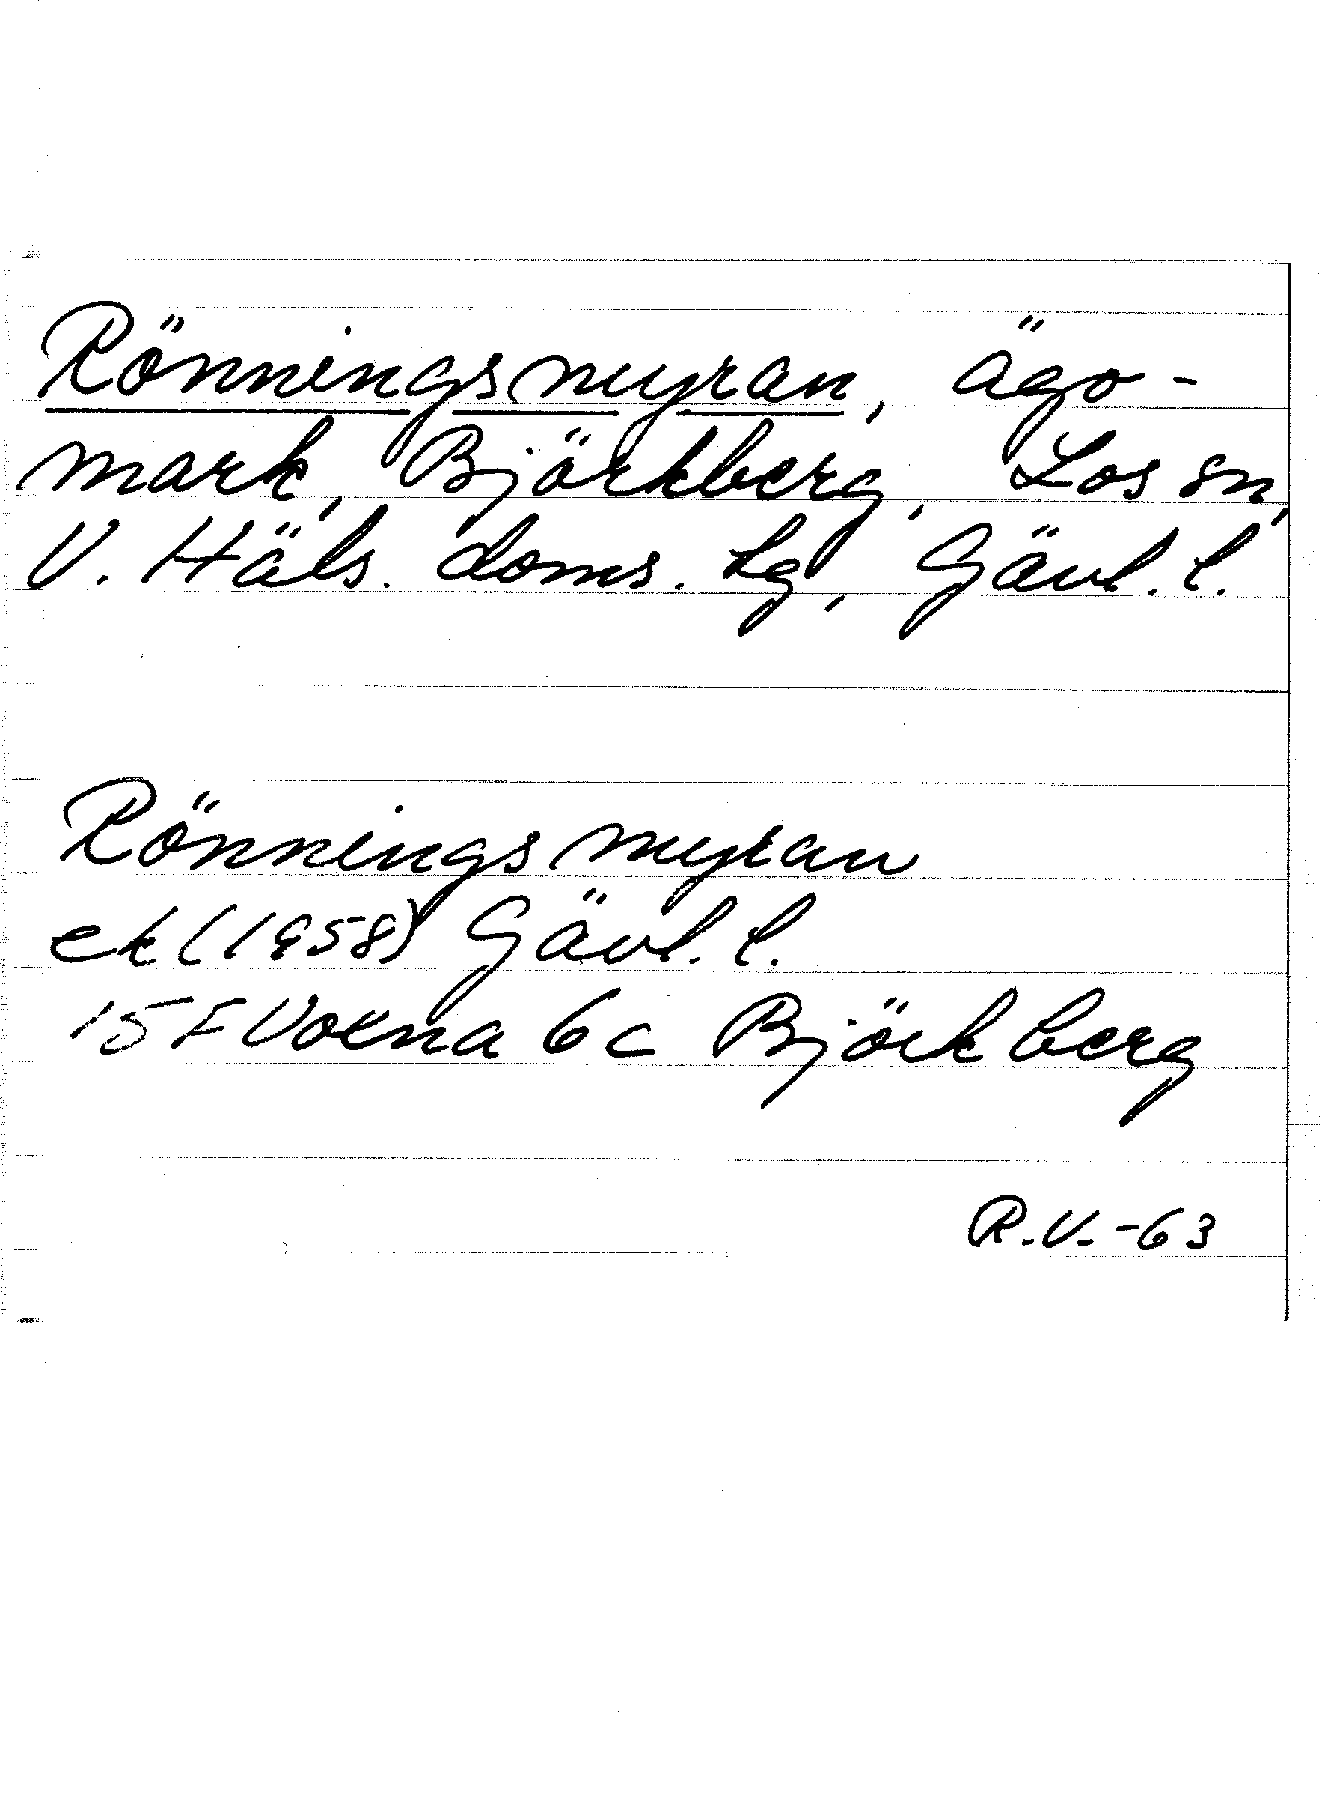 Rönningsmyran, ägo-
mark, Björkberg, Los sn,
V. Häls. doms. lg, Gävl. l.
Rönningsmyran
ek (1958) Gävl. l.
15 F Voxna 6c Björkberg
R.V.-63